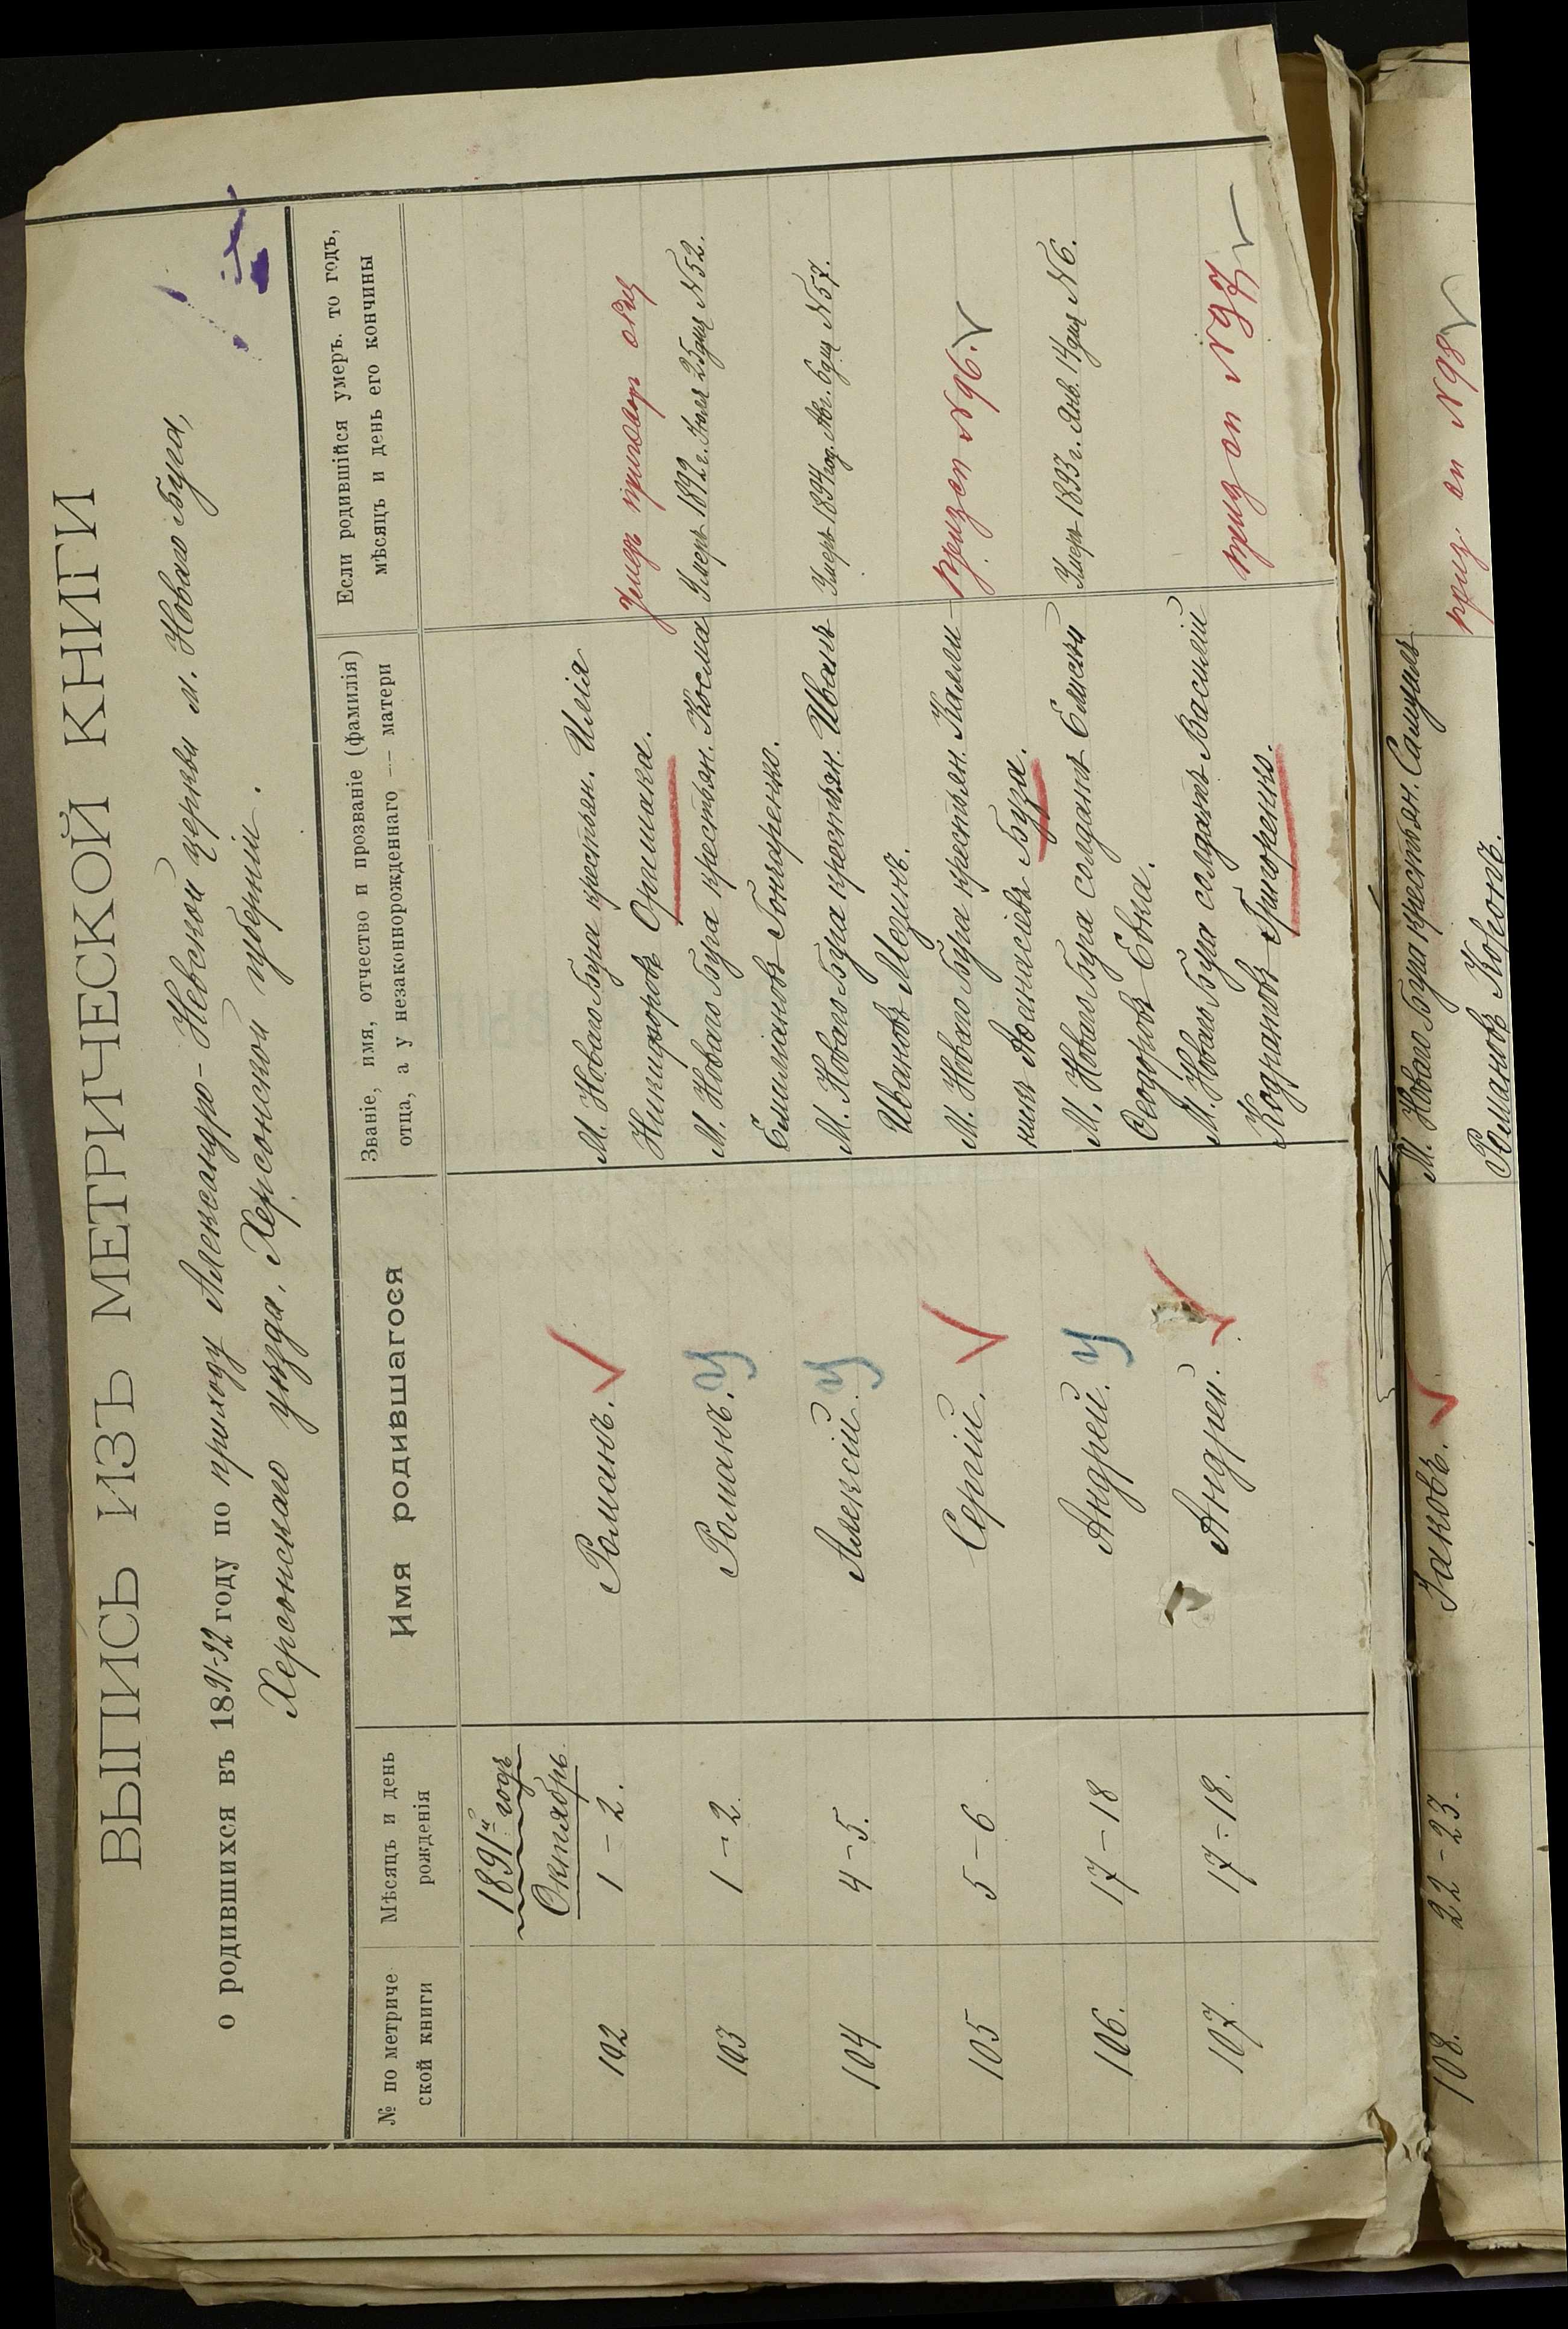 ВЫПИСЬ ИЗЪ МЕТРИЧЕСКОЙ КНИГИ
о родившихся въ 1891-92 году по приходу Александро-Невской церкви м. Новаго Буга,
Херсонскаго уѣзда, Херсонской губерніи.
№ по метриче
ской книги
Мѣсяцъ и день
рожденія
Имя родившагося
Званіе, имя, отчество и прозваніе (фамилія)
отца, а у незаконворожденнаго — матери
Если родившійся умеръ. то годъ,
мѣсяцъ и день его кончины
1891й годъ
Октябрь
102 1-2. Романъ. М. Новаго Буга крестьян. Илія
Никифоровъ Оришака. Умеръ приговор
103 1-2. Романъ. У М. Новаго Буга крестьян. Косма Умеръ 1892 г. Іюля 25 дня N 52.
Емиліановъ Гончаренко.
104 4-5. Алексій. У М. Новаго Буга крестьян. Иванъ Умеръ 1894 год. Авг. 6 дня N 57.
Ивановъ Мезинъ.
105 5-6 Сергій. М. Новаго Буга крестьян. Калли- приз сп N 96.
никъ Аѳанасіевъ Буза.
106. 17-18 Андрей. У М. Новаго Буга солдатъ Елисей Умеръ 1893 г. Янв. 14 дня N 6.
Ѳеодоровъ Евка.
107. 17-18. Андрей. М. Новаго Буга солдатъ Василій приз сп N 97
Кодратовъ Григоренко.
108. 22-23. Іаковъ. М. Новаго Буга крестьян. Самуилъ приз. сп N 98
Романовъ Коронъ.